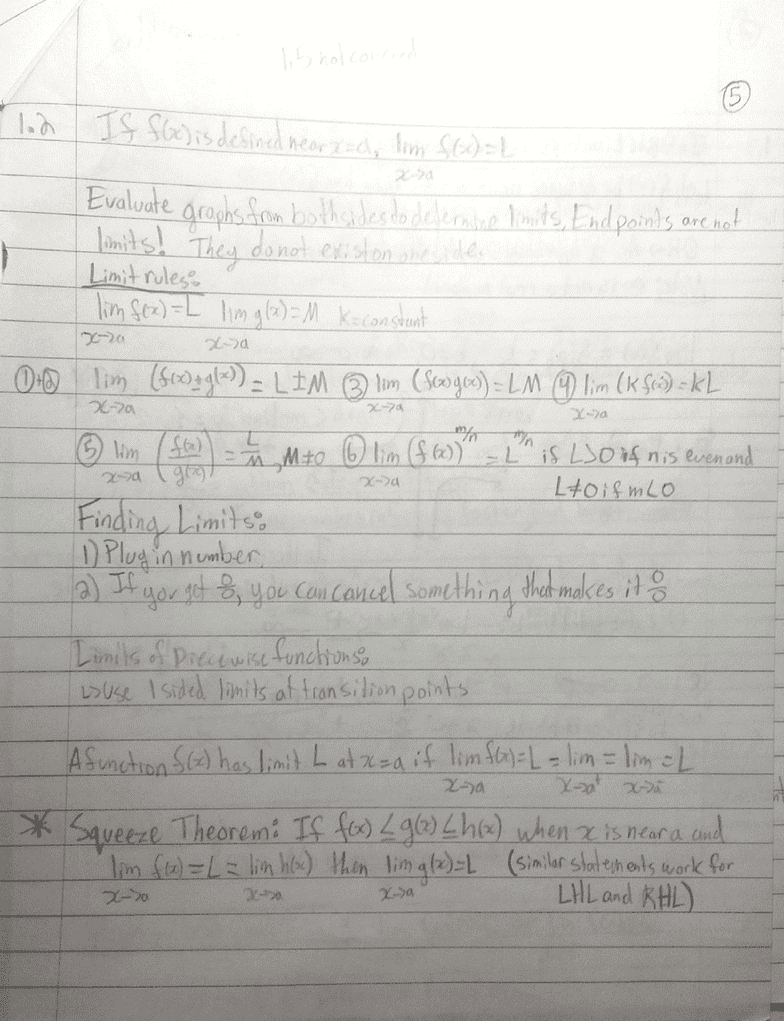 1.5 not covered
5
1.2 If f(x) is defined near x=a, lim f(x)=L
x→a
Evaluate graphs from both sides to determine limits, Endpoints are not
limits! They do not exist on one side.
Limit rules:
lim f(x)=L lim g(x)=M K=constant
x→a x→a
①+② lim (f(x)±g(x)) = L±M ③ lim (f(x)g(x))=LM ④ lim (K f(x))=KL
x→a x→a x→a
⑤ lim (f(x)/g(x)) = L/M, M≠0 ⑥ lim (f(x))^m/n = L^m/n if L>0 if n is even and
x→a x→a L≠0 if m<0
Finding Limits:
1) Plug in number.
2) If you get 0/0, you can cancel something that makes it 0/0
Limits of Piecewise functions:
↳Use 1 sided limits at transition points
A function f(x) has limit L at x=a if lim f(x)=L = lim = lim =L
x→a x→a⁺ x→a⁻
* Squeeze Theorem: If f(x) ≤ g(x) ≤ h(x) when x is near a and
lim f(x) = L = lim h(x) then lim g(x)=L (similar statements work for
x→a x→a x→a LHL and RHL)